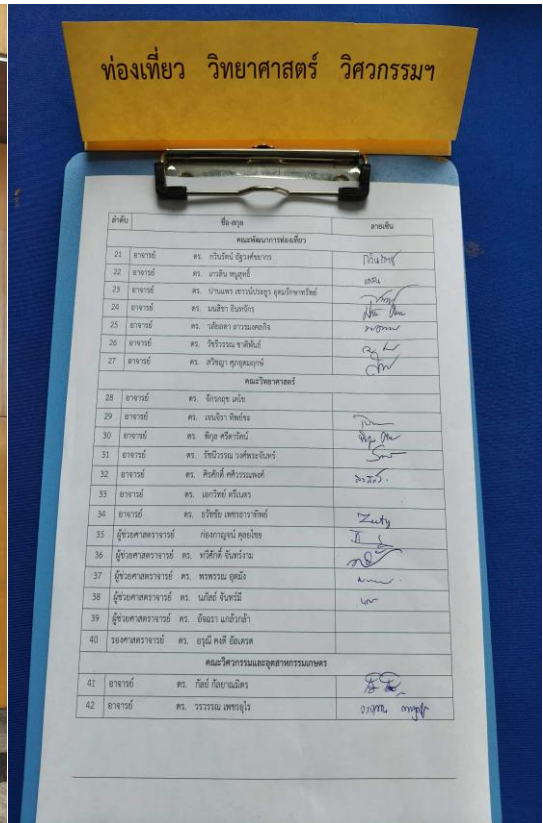 ท่องเที่ยว วิทยาศาสตร์ วิศวกรรมฯ
ลำดับ ชื่อ-สกุล ลายเซ็น
คณะพัฒนาการท่องเที่ยว
21 อาจารย์ ดร. กวินรัตน์ อัฐวงศ์ชยากร
22 อาจารย์ ดร. เกวลิน หนูสุทธิ์
23 อาจารย์ ดร. ปานแพร เชาวน์ประยูร อุดมรักษาทรัพย์
24 อาจารย์ ดร. มนสิชา อินทจักร
25 อาจารย์ ดร. วลัยลดา ถาวรมงคลกิจ
26 อาจารย์ ดร. วัชรีวรรณ ชาติพันธ์
27 อาจารย์ ดร. สวิชญา ศุภอุดมฤกษ์
คณะวิทยาศาสตร์
28 อาจารย์ ดร. จักรกฤช เตโช
29 อาจารย์ ดร. เจนจิรา ทิพย์ชะ
30 อาจารย์ ดร. พิกุล ศรีดารัตน์
31 อาจารย์ ดร. รัชนีวรรณ วงศ์พระจันทร์
32 อาจารย์ ดร. ศิรศักดิ์ ศศิวรรณพงศ์
33 อาจารย์ ดร. เอกวิทย์ ตรีเนตร
34 อาจารย์ ดร. ธวัชชัย เพชรธาราทิพย์
35 ผู้ช่วยศาสตราจารย์ ก่องกาญจน์ ดุลยไชย
36 ผู้ช่วยศาสตราจารย์ ดร. ทวีศักดิ์ จันทร์งาม
37 ผู้ช่วยศาสตราจารย์ ดร. พรพรรณ อุตมัง
38 ผู้ช่วยศาสตราจารย์ ดร. นภัสถ์ จันทร์มี
39 ผู้ช่วยศาสตราจารย์ ดร. อัจฉรา แกล้วกล้า
40 รองศาสตราจารย์ ดร. อรุณี คงดี อัลเดรด
คณะวิศวกรรมและอุตสาหกรรมเกษตร
41 อาจารย์ ดร. กัลย์ กัลยาณมิตร
42 อาจารย์ ดร. วรวรรณ เพชรอุไร